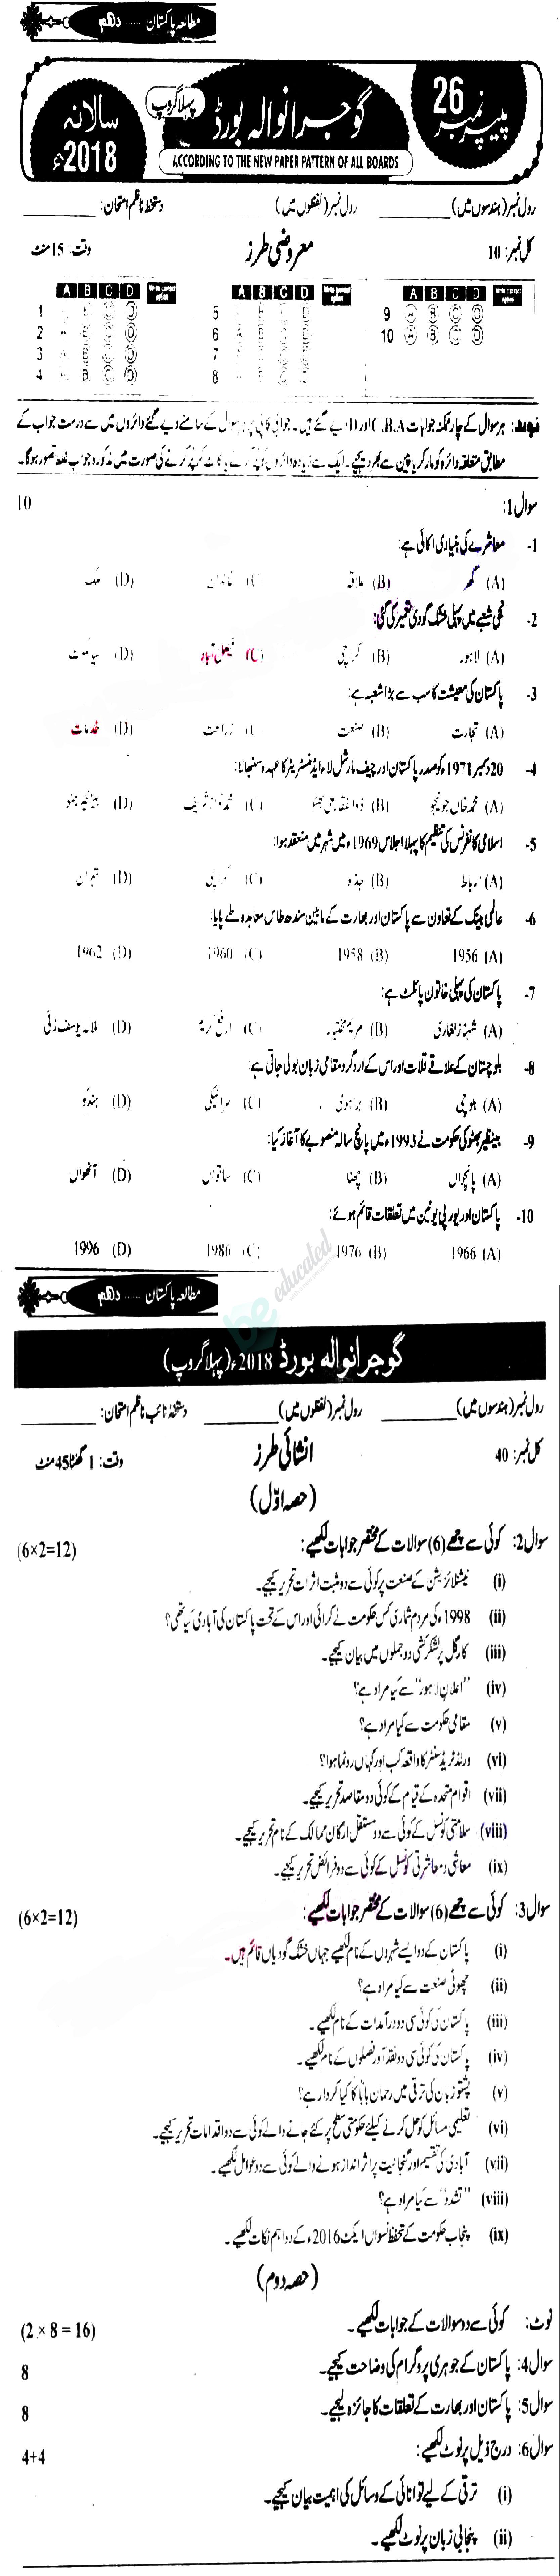 مطالعہ پاکستان ...... دہم
پیپر نمبر 26
گوجرانوالہ بورڈ
پہلا گروپ
سالانہ 2018ء
ACCORDING TO THE NEW PAPER PATTERN OF ALL BOARDS
رول نمبر (ہندسوں میں) ____________ رول نمبر (لفظوں میں) ____________ دستخط ناظم امتحان: ____________
کل نمبر: 10 معروضی طرز وقت: 15 منٹ
A B C D
1
2
3
4
A B C D
5
6
7
8
A B C D
9 A B C D
10 A B C D
نوٹ: ہر سوال کے چار ممکنہ جوابات C،B،A اور D دیے گئے ہیں۔ جوابی کاپی پر ہر سوال کے سامنے دیے گئے دائروں میں سے درست جواب کے
مطابق متعلقہ دائرہ کو مارکر یا پین سے بھر دیجیے۔ ایک سے زیادہ دائروں کو پُر کرنے یا کاٹ کر پُر کرنے کی صورت میں مذکورہ جواب غلط تصور ہوگا۔
سوال 1: 10
1- معاشرے کی بنیادی اکائی ہے:
(A) گھر (B) علاقہ (C) خاندان (D) ملک
2- نجی شعبے میں پہلی خشک گودی تعمیر کی گئی:
(A) لاہور (B) کراچی (C) فیصل آباد (D) سیالکوٹ
3- پاکستان کی معیشت کا سب سے بڑا شعبہ ہے:
(A) تجارت (B) صنعت (C) زراعت (D) خدمات
4- 20 دسمبر 1971ء کو صدر پاکستان اور چیف مارشل لاء ایڈمنسٹریٹر کا عہدہ سنبھالا:
(A) محمد خاں جونیجو (B) ذوالفقار علی بھٹو (C) محمد نواز شریف (D) بینظیر بھٹو
5- اسلامی کانفرنس کی تنظیم کا پہلا اجلاس 1969ء میں شہر میں منعقد ہوا:
(A) رباط (B) جدہ (C) کراچی (D) تہران
6- عالمی بینک کے تعاون سے پاکستان اور بھارت کے مابین سندھ طاس معاہدہ طے پایا:
(A) 1956 (B) 1958 (C) 1960 (D) 1962
7- پاکستان کی پہلی خاتون پائلٹ ہے:
(A) شہناز لغاری (B) مریم مختیار (C) ارفع کریم (D) ملالہ یوسف زئی
8- بلوچستان کے علاقے قلات اور اس کے ارد گرد مقامی زبان بولی جاتی ہے:
(A) بلوچی (B) براہوی (C) سرائیکی (D) ہندکو
9- بینظیر بھٹو کی حکومت نے 1993ء میں پانچ سالہ منصوبے کا آغاز کیا:
(A) پانچواں (B) چھٹا (C) ساتواں (D) آٹھواں
10- پاکستان اور یورپی یونین میں تعلقات قائم ہوئے:
(A) 1966 (B) 1976 (C) 1986 (D) 1996
be educated
مطالعہ پاکستان ...... دہم
گوجرانوالہ بورڈ 2018ء (پہلا گروپ)
رول نمبر (ہندسوں میں) ____________ رول نمبر (لفظوں میں) ____________ دستخط نائب ناظم امتحان: ____________
کل نمبر: 40 انشائی طرز وقت: 1 گھنٹا 45 منٹ
(حصہ اوّل)
سوال 2: کوئی سے چھے (6) سوالات کے مختصر جوابات لکھیے: (6×2=12)
(i) نیشنلائزیشن کے صنعت پر کوئی سے دو مثبت اثرات تحریر کیجیے۔
(ii) 1998ء کی مردم شماری کس حکومت نے کرائی اور اس کے تحت پاکستان کی آبادی کیا تھی؟
(iii) کارگل پر لشکر کشی دو جملوں میں بیان کیجیے۔
(iv) "اعلانِ لاہور" سے کیا مراد ہے؟
(v) مقامی حکومت سے کیا مراد ہے؟
(vi) ورلڈ ٹریڈ سنٹر کا واقعہ کب اور کہاں رونما ہوا؟
(vii) اقوام متحدہ کے قیام کے کوئی دو مقاصد تحریر کیجیے۔
(viii) سلامتی کونسل کے کوئی سے دو مستقل ارکان ممالک کے نام تحریر کیجیے۔
(ix) معاشی و معاشرتی کونسل کے کوئی سے دو فرائض تحریر کیجیے۔
سوال 3: کوئی سے چھے (6) سوالات کے مختصر جوابات لکھیے: (6×2=12)
(i) پاکستان کے دو ایسے شہروں کے نام لکھیے جہاں خشک گودیاں قائم ہیں۔
(ii) چھوٹی صنعت سے کیا مراد ہے؟
(iii) پاکستان کی کوئی سی دو درآمدات کے نام لکھیے۔
(iv) پاکستان کی کوئی سی دو نقد آور فصلوں کے نام لکھیے۔
(v) پشتو زبان کی ترقی میں رحمان بابا کا کیا کردار ہے؟
(vi) تعلیمی مسائل کو حل کرنے کیلئے حکومتی سطح پر کئے جانے والے کوئی سے دو اقدامات تحریر کیجیے۔
(vii) آبادی کی تقسیم اور گنجانیت پر اثر انداز ہونے والے کوئی سے دو عوامل لکھیے۔
(viii) "تشدد" سے کیا مراد ہے؟
(ix) پنجاب حکومت کے تحفظ نسواں ایکٹ 2016ء کے دو اہم نکات لکھیے۔
(حصہ دوم)
نوٹ: کوئی سے دو سوالات کے جوابات لکھیے۔ (2 × 8 = 16)
سوال 4: پاکستان کے جوہری پروگرام کی وضاحت کیجیے۔ 8
سوال 5: پاکستان اور بھارت کے تعلقات کا جائزہ لیجیے۔ 8
سوال 6: درج ذیل پر نوٹ لکھیے: 4+4
(i) ترقی کے لیے توانائی کے وسائل کی اہمیت بیان کیجیے۔
(ii) پنجابی زبان پر نوٹ لکھیے۔